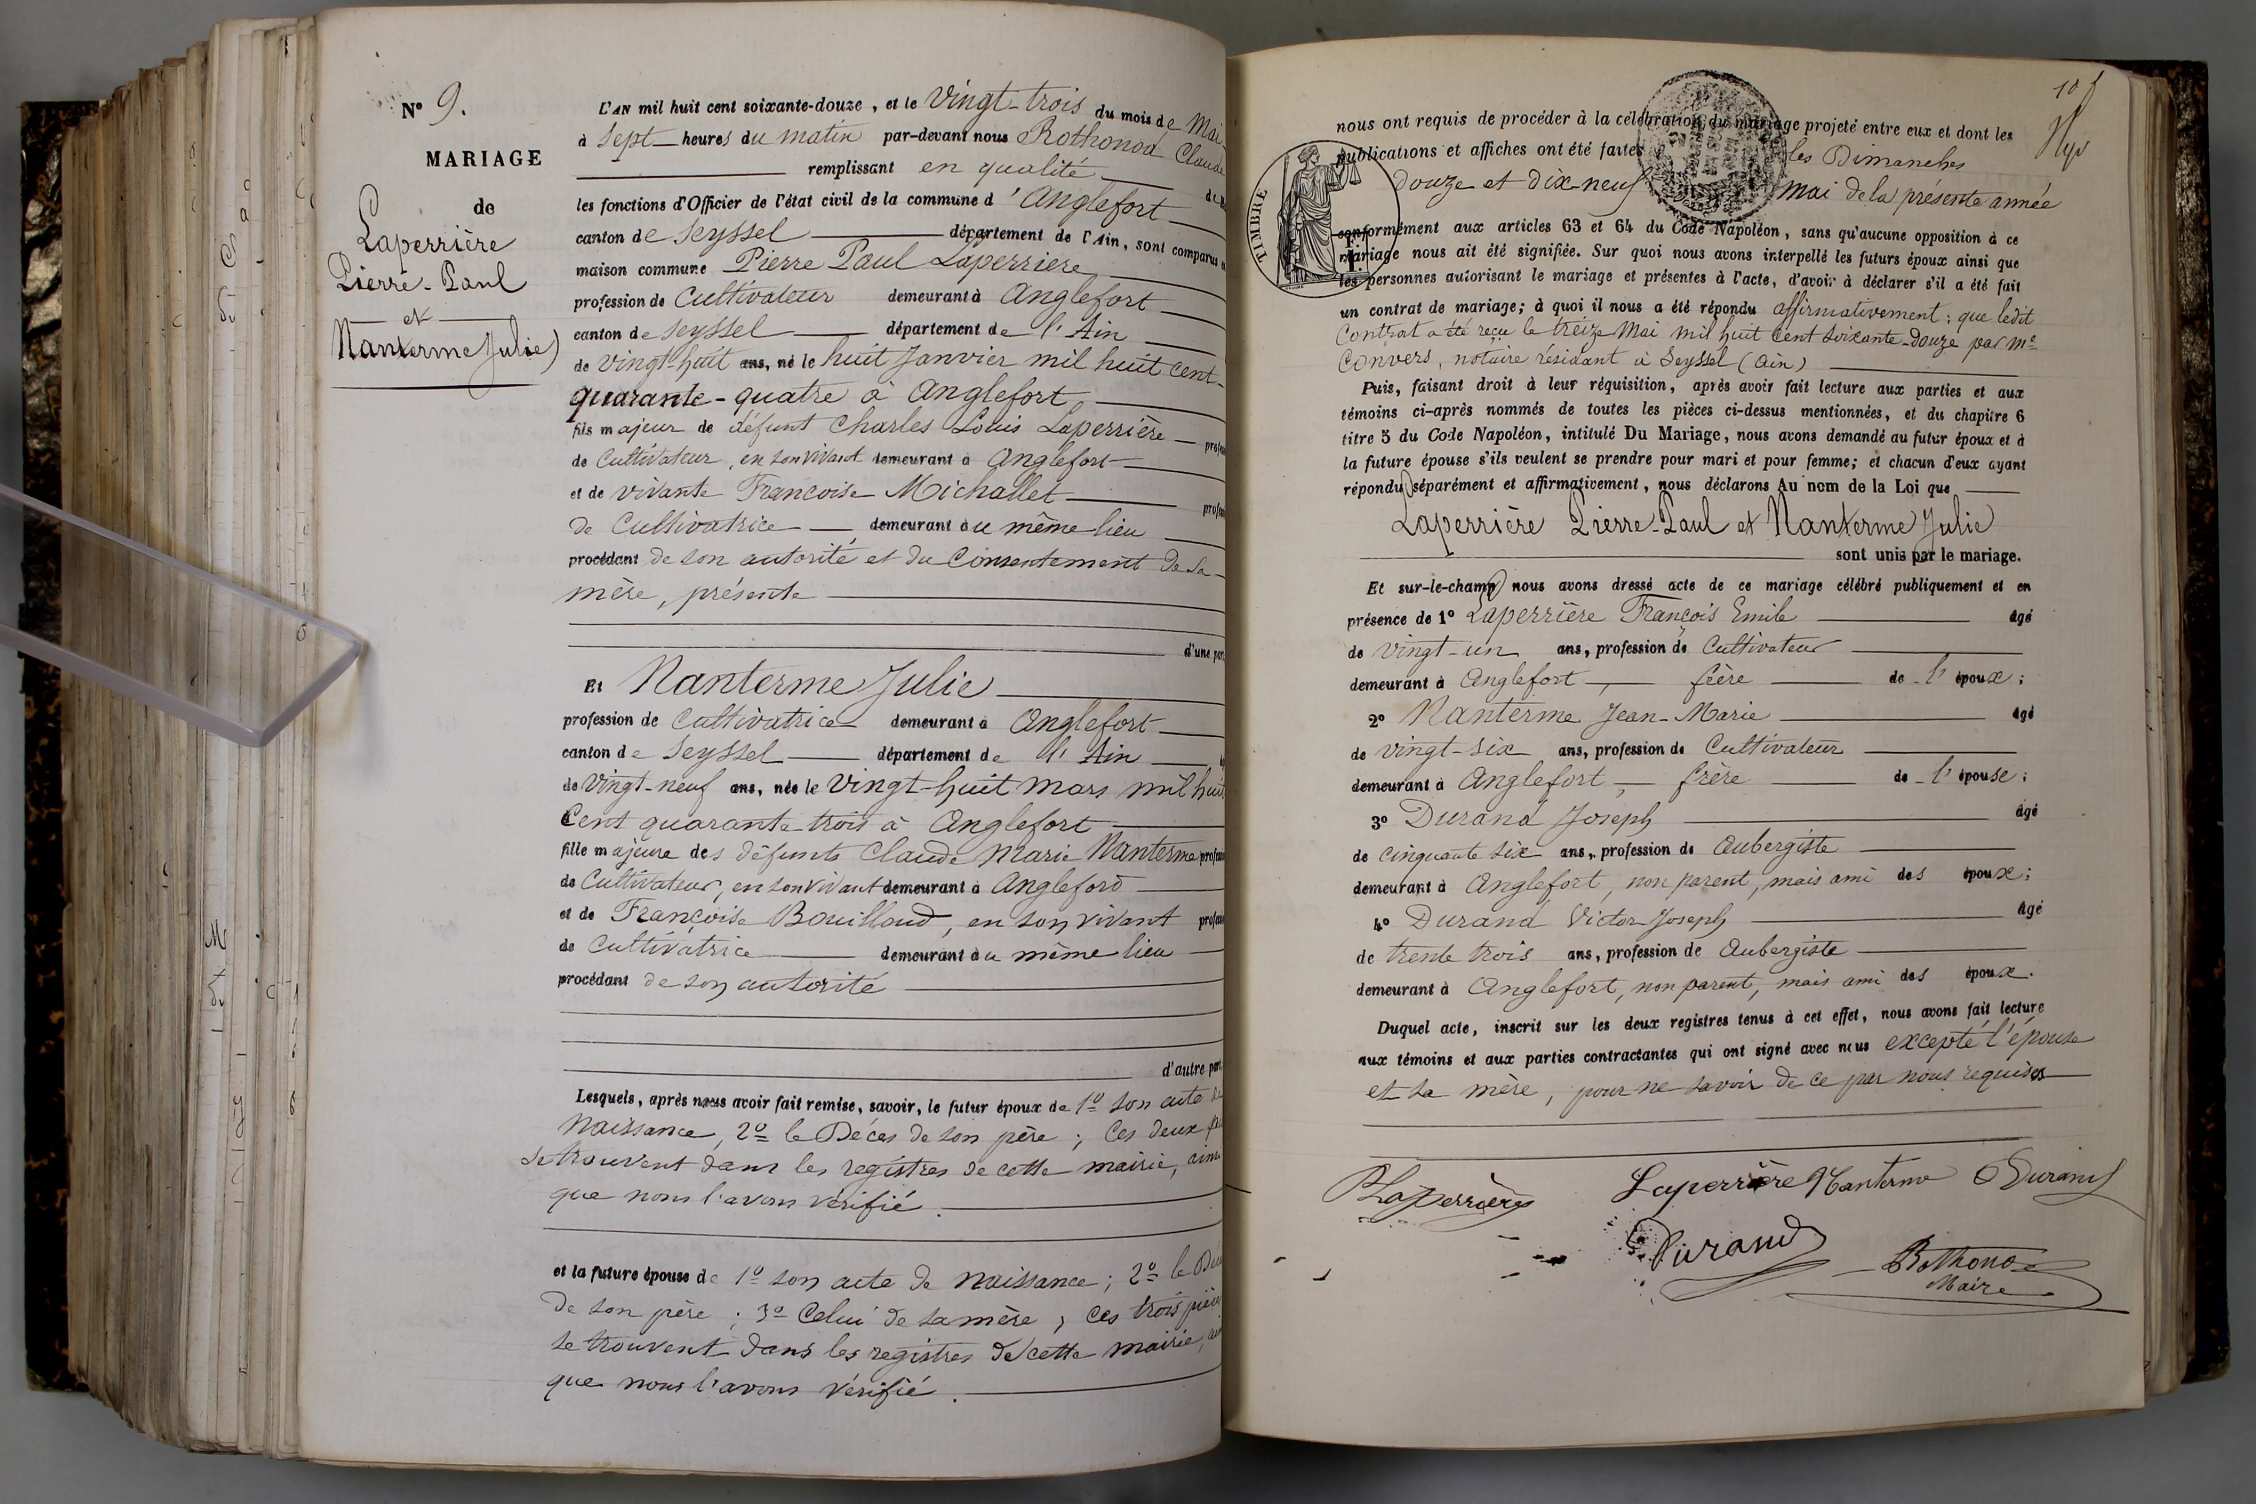 N° 9.
MARIAGE
de
Laperrière
Pierre-Paul
et
Nanterme Julie
L'AN mil huit cent soixante-douze, et le Vingt-trois du mois de Mai
à sept heures du matin par-devant nous Rothonod Claude
remplissant en qualité de
les fonctions d'Officier de l'état civil de la commune d'Anglefort
canton de Seyssel département de l'Ain, sont comparus
maison commune Pierre Paul Laperrière
profession de Cultivateur demeurant à Anglefort
canton de Seyssel département de l'Ain
de vingt-huit ans, né le huit Janvier mil huit cent-
quarante-quatre à Anglefort
fils majeur de défunt Charles Louis Laperrière
de Cultivateur, en son vivant demeurant à Anglefort
et de vivante Françoise Michallet
de Cultivatrice demeurant au même lieu
procédant de son autorité et du Consentement de sa
mère, présente
d'une par
Et Nanterme Julie
profession de Cultivatrice demeurant à Anglefort
canton de Seyssel département de l'Ain
de vingt-neuf ans, née le Vingt-huit Mars mil huit
Cent quarante-trois à Anglefort
fille majeure des défunts Claude Marie Nanterme
de Cultivateur, en son vivant demeurant à Anglefort
et de Françoise Bouilloud, en son vivant
de Cultivatrice demeurant au même lieu
procédant de son autorité
d'autre par
Lesquels, après nous avoir fait remise, savoir, le futur époux de 1° son acte de
Naissance, 2° le Décès de son père; Ces deux
se trouvent dans les registres de cette mairie, ainsi
que nous l'avons vérifié.
et la future épouse de 1° son acte de Naissance; 2° le
de son père; 3° Celui de sa mère, Ces trois pièces
se trouvent dans les registres de cette mairie,
que nous l'avons vérifié.
nous ont requis de procéder à la célébration du mariage projeté entre eux et dont les
publications et affiches ont été faites les Dimanches
Douze et dix-neuf Mai de la présente année
TIMBRE
conformément aux articles 63 et 64 du Code Napoléon, sans qu'aucune opposition à ce
mariage nous ait été signifiée. Sur quoi nous avons interpellé les futurs époux ainsi que
les personnes autorisant le mariage et présentes à l'acte, d'avoir à déclarer s'il a été fait
un contrat de mariage; à quoi il nous a été répondu affirmativement; que ledit
Contrat a été reçu le treize Mai mil huit Cent soixante-Douze par Me
Convers, notaire résidant à Seyssel (Ain)
Puis, faisant droit à leur réquisition, après avoir fait lecture aux parties et aux
témoins ci-après nommés de toutes les pièces ci-dessus mentionnées, et du chapitre 6
titre 5 du Code Napoléon, intitulé Du Mariage, nous avons demandé au futur époux et à
la future épouse s'ils veulent se prendre pour mari et pour femme; et chacun d'eux ayant
répondu séparément et affirmativement, nous déclarons Au nom de la Loi que
Laperrière Pierre-Paul et Nanterme Julie
sont unis par le mariage.
Et sur-le-champ nous avons dressé acte de ce mariage célébré publiquement et en
présence de 1° Laperrière François Emile âgé
de vingt-un ans, profession de Cultivateur
demeurant à Anglefort, frère de l'époux;
2° Nanterme Jean-Marie âgé
de vingt-six ans, profession de Cultivateur
demeurant à Anglefort, frère de l'épouse;
3° Durand Joseph âgé
de cinquante six ans, profession de Aubergiste
demeurant à Anglefort, non parent, mais ami des époux;
4° Durand Victor Joseph âgé
de trente trois ans, profession de Aubergiste
demeurant à Anglefort, non parent, mais ami des époux.
Duquel acte, inscrit sur les deux registres tenus à cet effet, nous avons fait lecture
aux témoins et aux parties contractantes qui ont signé avec nous excepté l'épouse
et sa mère, pour ne savoir de ce par nous requises
PLaperrière Laperrière Nanterme Durand
Durand
Rothonod
Maire